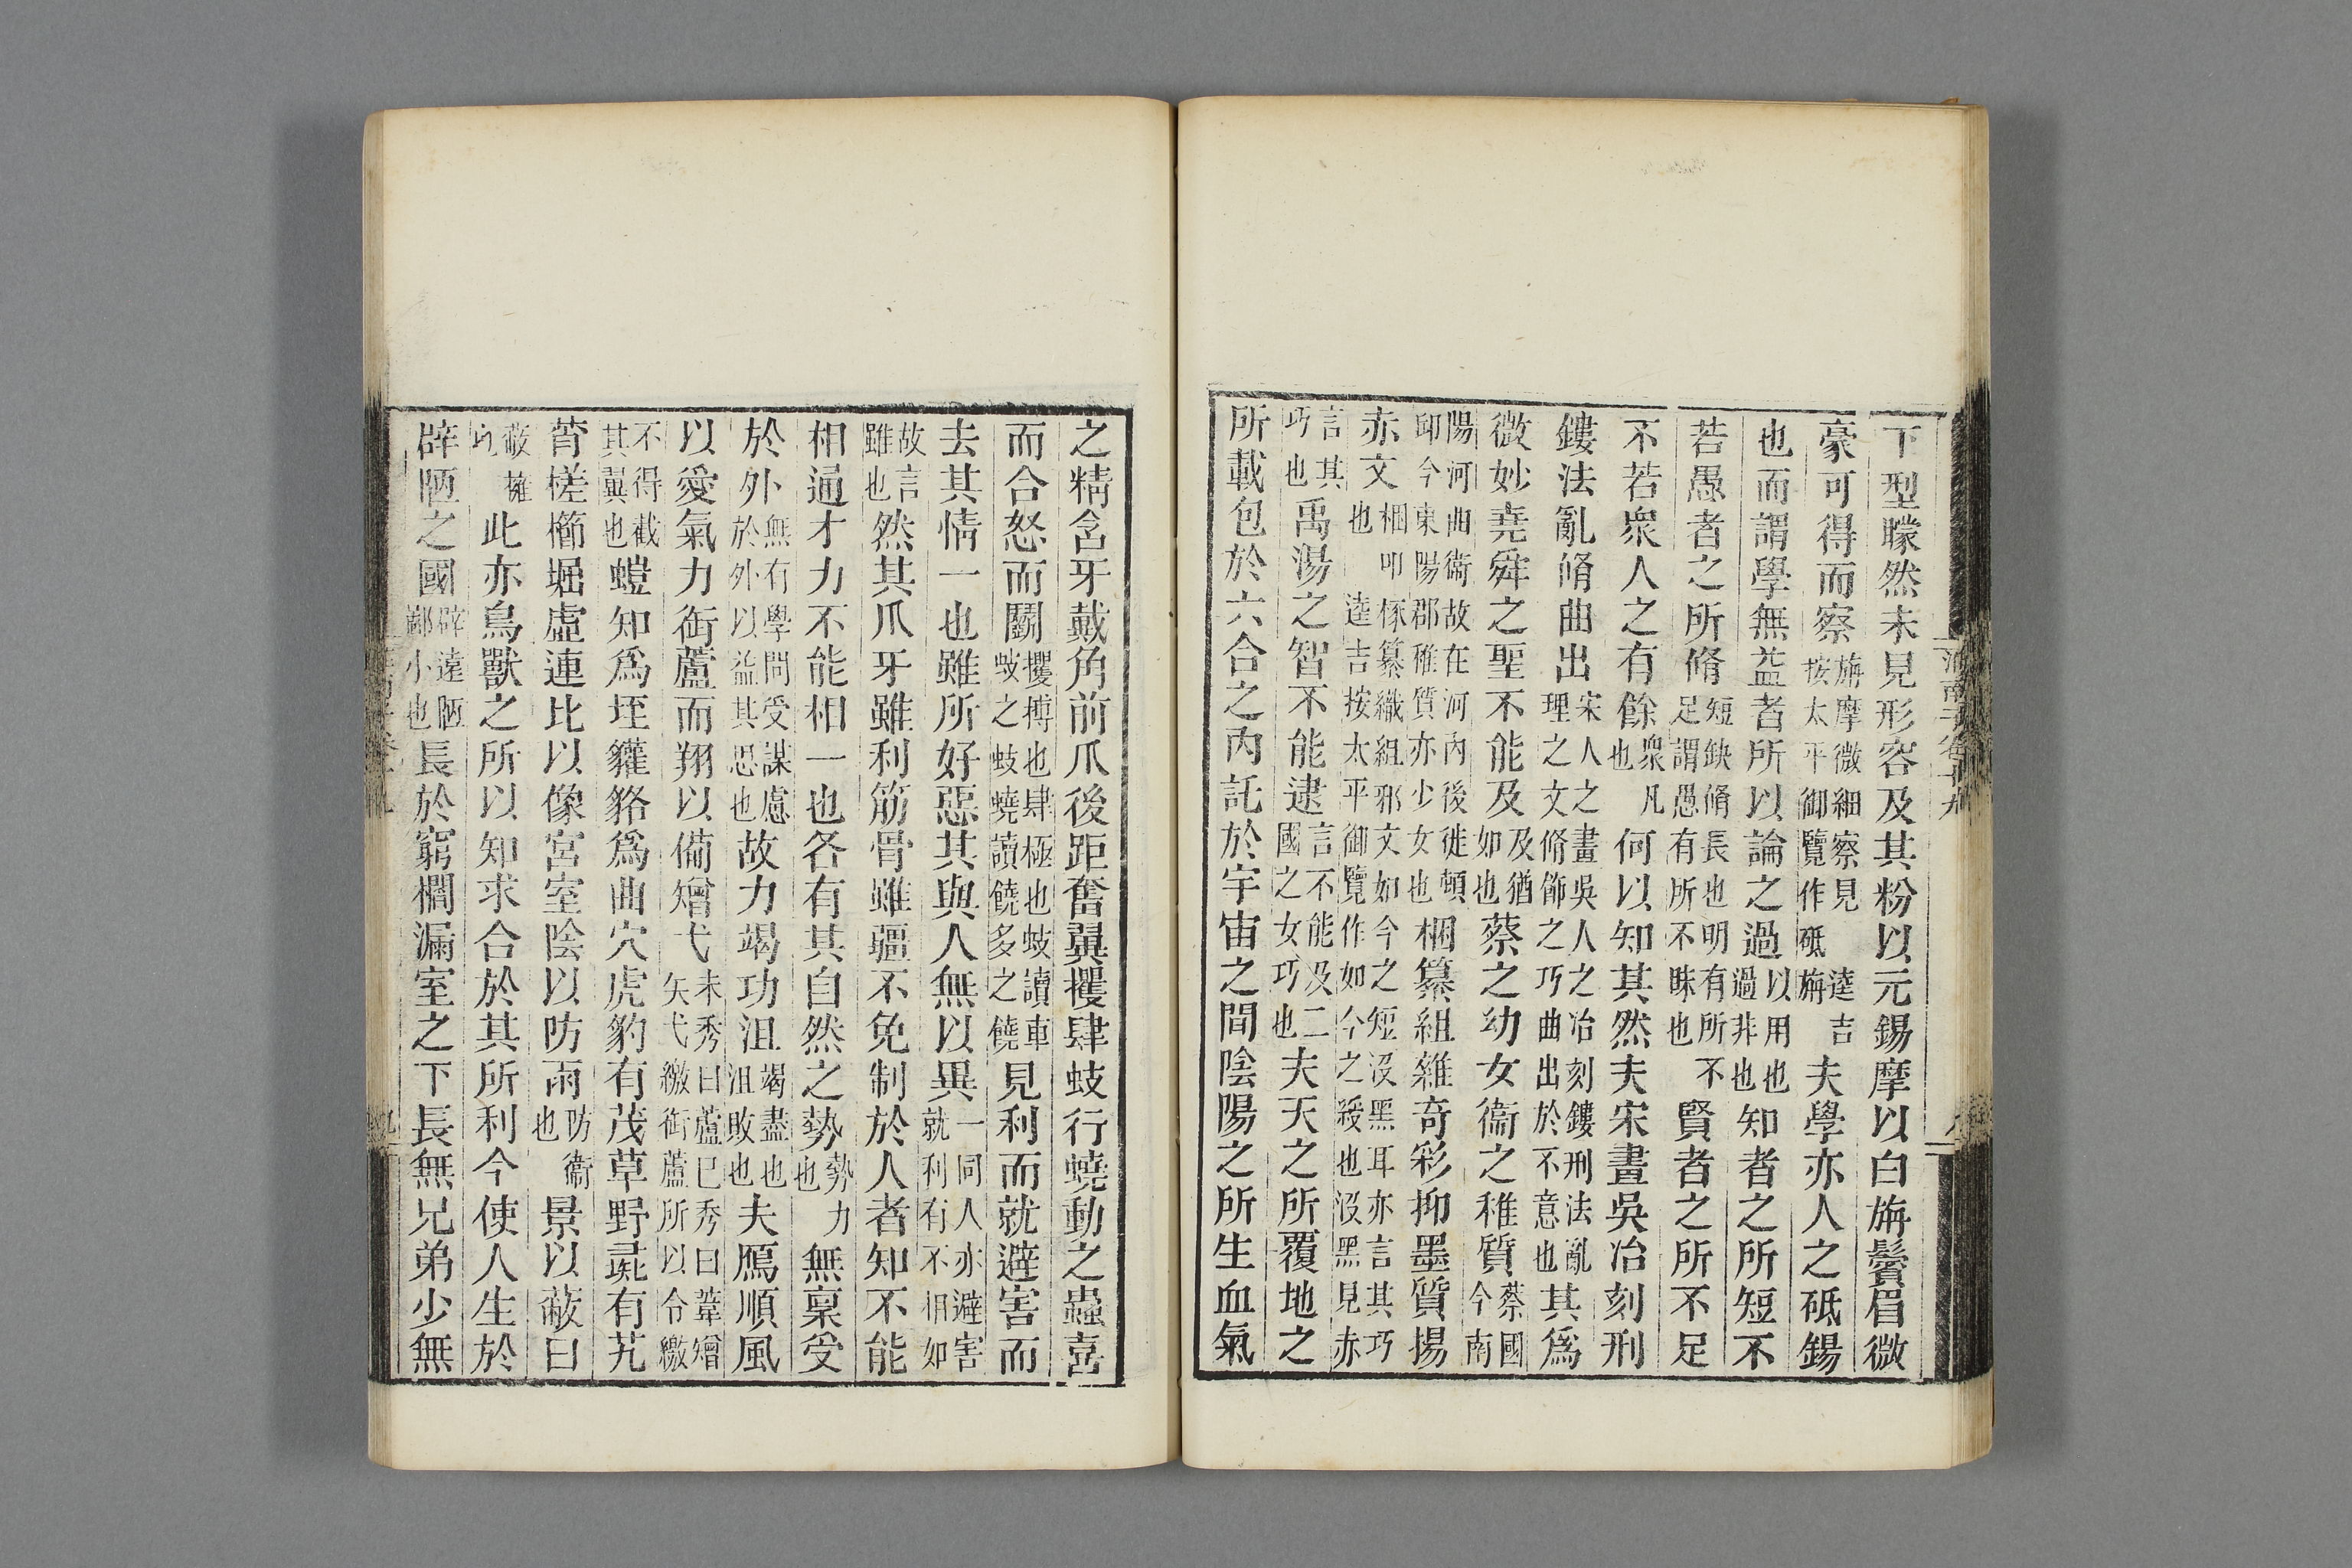 下型矇然未見形容及其粉以元錫摩以白旃鬢眉微
豪可得而察旃摩微細察見逵吉按太平御覽作砥旃夫學亦人之砥錫
也而謂學無益者所以論之過以用也過非也知者之所短不
若愚者之所脩短缺脩長也明有所不足謂愚有所不昧也賢者之所不足
不若衆人之有餘衆凡也何以知其然夫宋畫吳冶刻刑
鏤法亂脩曲出宋人之畫吳人之冶刻鏤刑法亂理之文脩飾之巧曲出於不意也其爲
微妙堯舜之聖不能及及猶如也蔡之幼女衞之稚質蔡國今南
陽河曲衞故在河內後徙頓卽今東陽郡稚質亦少女也梱纂組雜奇彩抑墨質揚
赤文梱叩椓纂織組邪文如今之短没黑耳亦言其巧也逵吉按太平御覽作如今之綬也没黑見赤
言其巧也禹湯之智不能逮言不能及二國之女巧也夫天之所覆地之
所載包於六合之內託於宇宙之間陰陽之所生血氣
淮南子卷十九
之精含牙戴角前爪後距奮翼攫肆蚑行蟯動之蟲喜
而合怒而鬭攫搏也肆極也蚑讀車蚑之蚑蟯讀饒多之饒見利而就避害而
去其情一也雖所好惡其與人無以異一同人亦避害就利有不相如
故言雖也然其爪牙雖利筋骨雖彊不免制於人者知不能
相通才力不能相一也各有其自然之勢勢力也無稟受
於外無有學問受謀慮於外以益其思也故力竭功沮竭盡也沮敗也夫鴈順風
以愛氣力銜蘆而翔以備矰弋未秀曰蘆已秀曰葦矰矢弋繳銜蘆所以令繳
不得截其翼也螘知爲垤貛貉爲曲穴虎豹有茂草野彘有艽
莦槎櫛堀虛連比以像宮室陰以防雨防衞也景以蔽日
蔽擁此亦鳥獸之所以知求合於其所利今使人生於
辟陋之國辟遠陋鄙小也長於窮櫚漏室之下長無兄弟少無